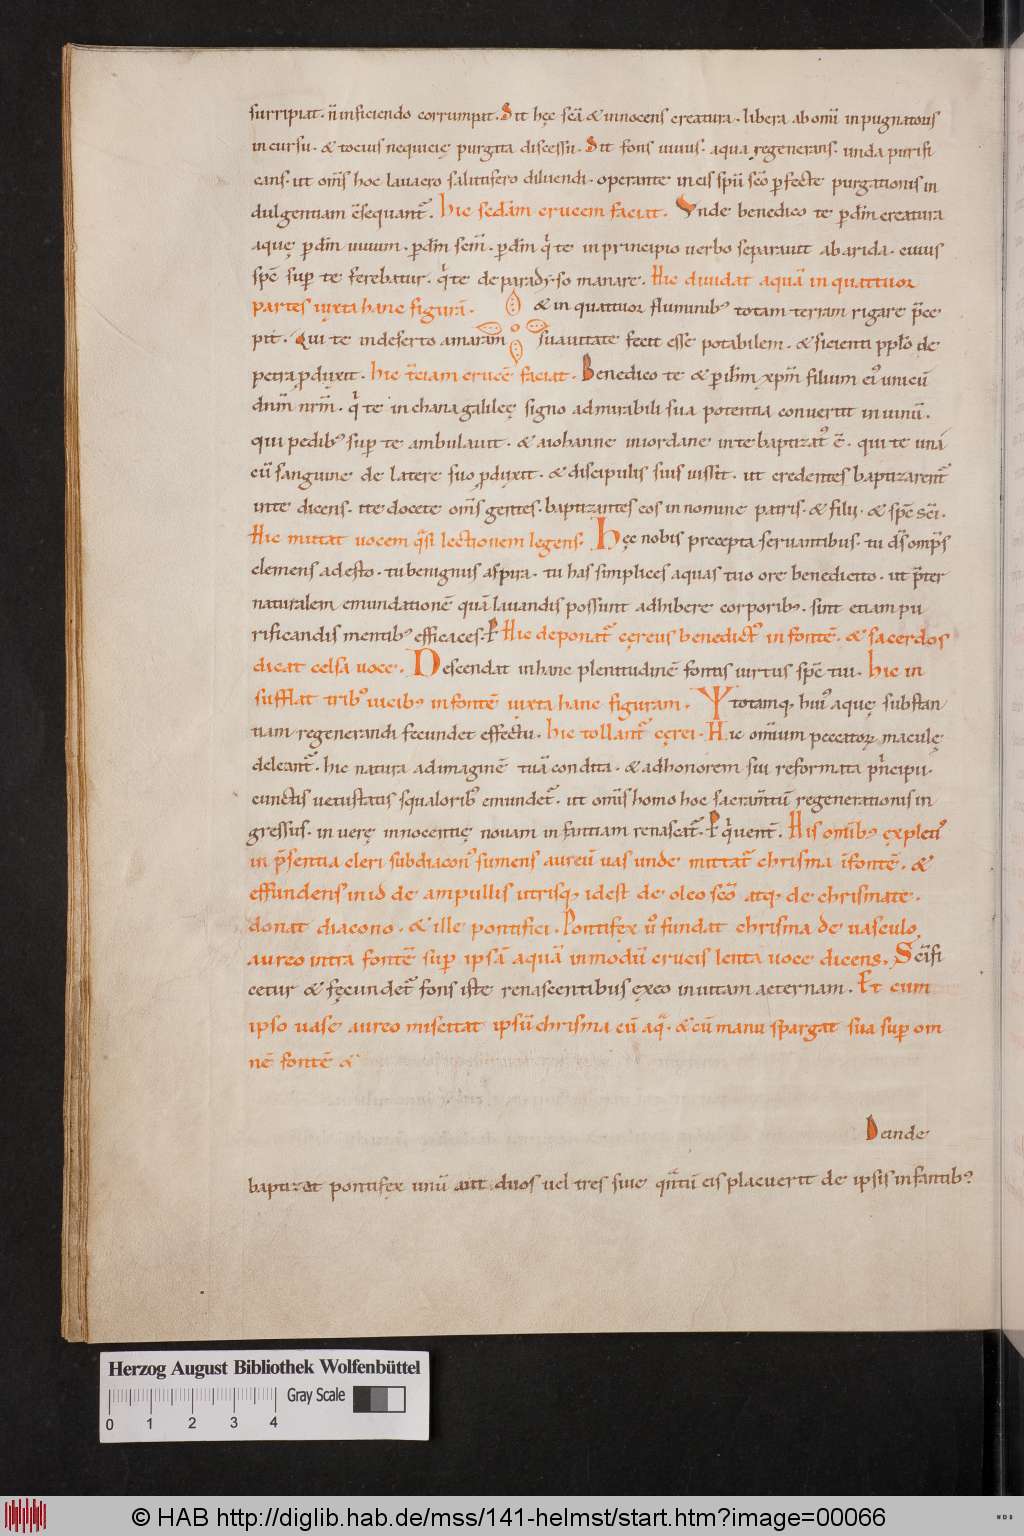 surripiat. n̄ inficiendo corrumpat. Sit hęc sc̄a & innocens creatura. libera ab om̄i inpugnatoris
incursu. & tocius nequicię purgata discessu. Sit fons uiuus. aqua regenerans. unda purifi
cans. ut om̄s hoc lauacro salutifero diluendi. operante in eis sp̄u sc̄o perfectę purgationis in
dulgentiam c̄sequant᷑. Hic sedam crucem faciat. Vnde benedico te p dm̄ creatura
aquę p dm̄ uiuum. p dm̄ sc̄m. p dm̄ q̄ te in principio uerbo separauit ab arida. cuius
sp̄c sup te ferebatur. q̄ te de paradyso manare. Hic diuidat aquā in quattuor
partes iuxta hanc figurā. & in quattuor fluminib; totam terram rigare p̄ce
pit. Qui te in deserto amaram suauitate fecit esse potabilem. & sicienti pplo de
petra pduxit. Hic t̄ciam crucē faciat. Benedico te & p ih̄m xp̄m filium ei᷒ unicū
dn̄m nr̄m. q̄ te in chana galileę signo admirabili sua potentia conuertit in uinū.
qui pedib; sup te ambulauit. & a iohanne in iordane in te baptizat᷒ ē. qui te unā
cū sanguine de latere suo pduxit. & discipulis suis iussit. ut credentes baptizarent᷑
in te dicens. ite docete om̄s gentes. baptizantes eos in nomine patris. & filii. & sp̄c sc̄i.
Hic mittat uocem q̄si lectionem legens. Hęc nobis precepta seruantibus. tu ds̄ omp̄s
clemens adesto. tu benignus aspira. tu has simplices aquas tuo ore benedicito. ut p̄ter
naturalem emundationē quā lauandis possunt adhibere corporib;. sint etiam pu
rificandis mentib; efficaces. P̄ Hic deponat᷑ cęreus benedict᷒ in fontē. & sacerdos
dicat celsa uoce. Descendat in hanc plenitudinē fontis uirtus sp̄c tui. Hic in
sufflat trib᷒ uicib; in fontē iuxta hanc figuram. Ψ totamq; hui᷒ aquę substan
tiam regenerandi fecundet effectu. Hic tollant᷑ cęrei. Hic omīum peccatorꝝ maculę
deleant᷑. hic natura ad imaginē tuā condita. & ad honorem sui reformata p̄ncipii.
cunctis uetustatis squalorib᷒ emundet᷑. ut om̄is homo hoc sacram̄tū regenerationis in
gressus. in uerę innocentię nouam infantiam renascat᷑. P q̄ uent̄. His omīb; expletᷤ
in p̄sentia cleri subdiacon᷒ sumens aureū uas unde mittat᷑ chrisma ī fontē. &
effundens in id de ampullis utrisq; idest de oleo sc̄o atq; de chrismate.
donat diacono. & ille pontifici. Pontifex u᷒ fundat chrisma de uasculo
aureo intra fontē sup ipsā aquā in modū crucis lenta uoce dicens. Sc̄ifi
cetur & fęcundet᷑ fons iste renascentibus ex eo in uitam aeternam. Et cum
ipso uase aureo misceat ipsū chrisma cū aq̄. & cū manu spargat sua sup om
nē fontē &
Deinde
baptizat pontifex unū aut duos uel tres siue qn̄tū eis placuerit de ipsis infantib;
Herzog August Bibliothek Wolfenbüttel
Gray Scale
0 1 2 3 4
© HAB http://diglib.hab.de/mss/141-helmst/start.htm?image=00066